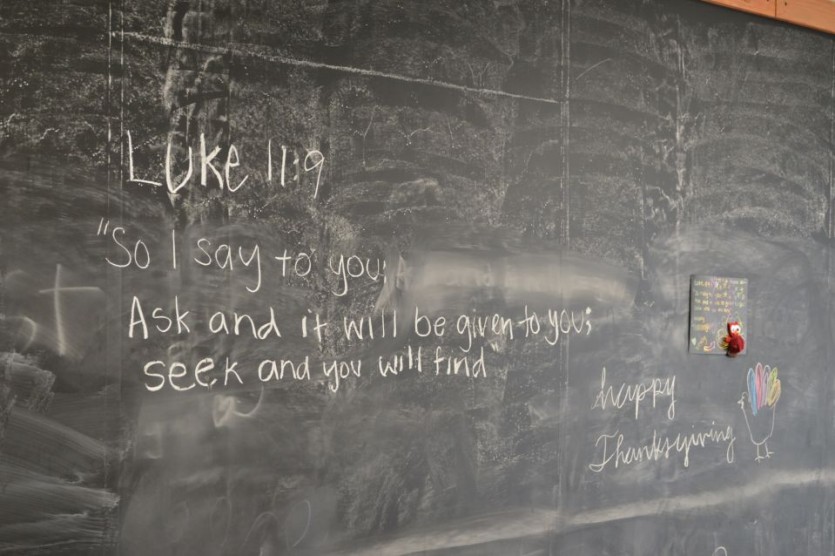 Luke 11:9
"So I say to you;
Ask and it will be given to you;
seek and you will find"
happy
Thanksgiving